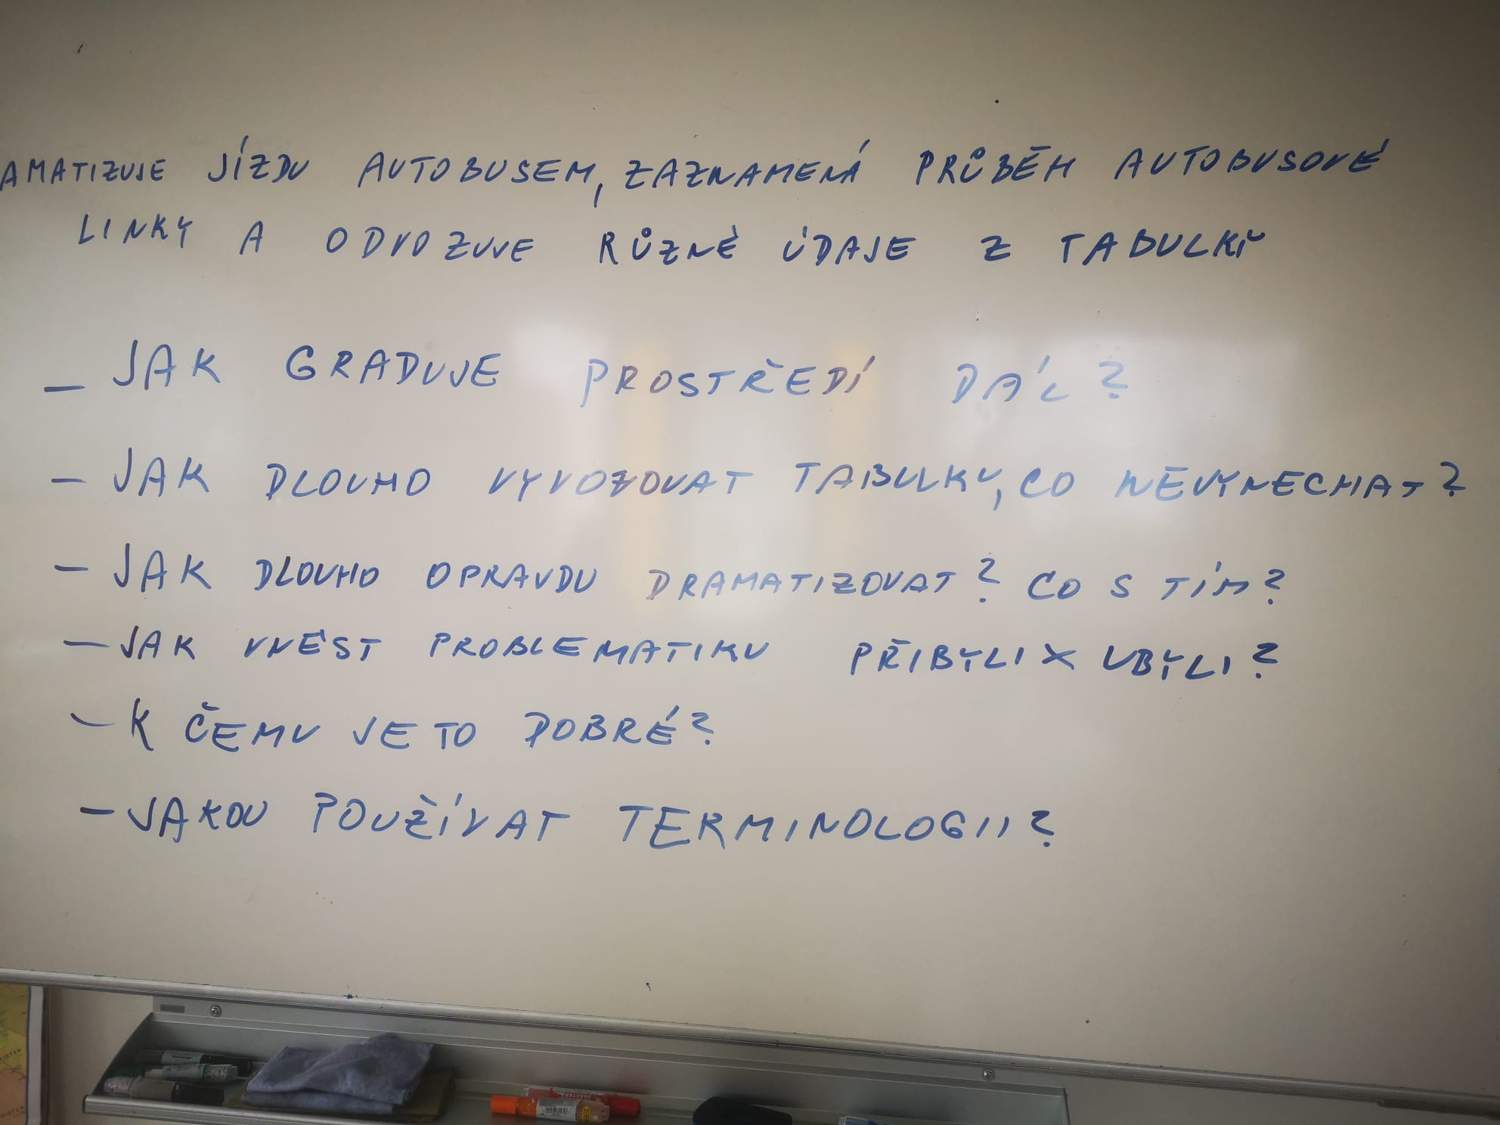 AMATIZUJE JÍZDU AUTOBUSEM, ZAZNAMENÁ PRŮBĚH AUTOBUSOVÉ
LINKY A ODVOZUJE RŮZNÉ ÚDAJE Z TABULKY
– JAK GRADUJE PROSTŘEDÍ DÁL?
– JAK DLOUHO VYVOZOVAT TABULKU, CO NEVYNECHAT?
– JAK DLOUHO OPRAVDU DRAMATIZOVAT? CO S TÍM?
– JAK VNÉST PROBLEMATIKU PŘIBYLI X UBYLI?
– K ČEMU JE TO DOBRÉ?
– JAKOU POUŽÍVAT TERMINOLOGII?